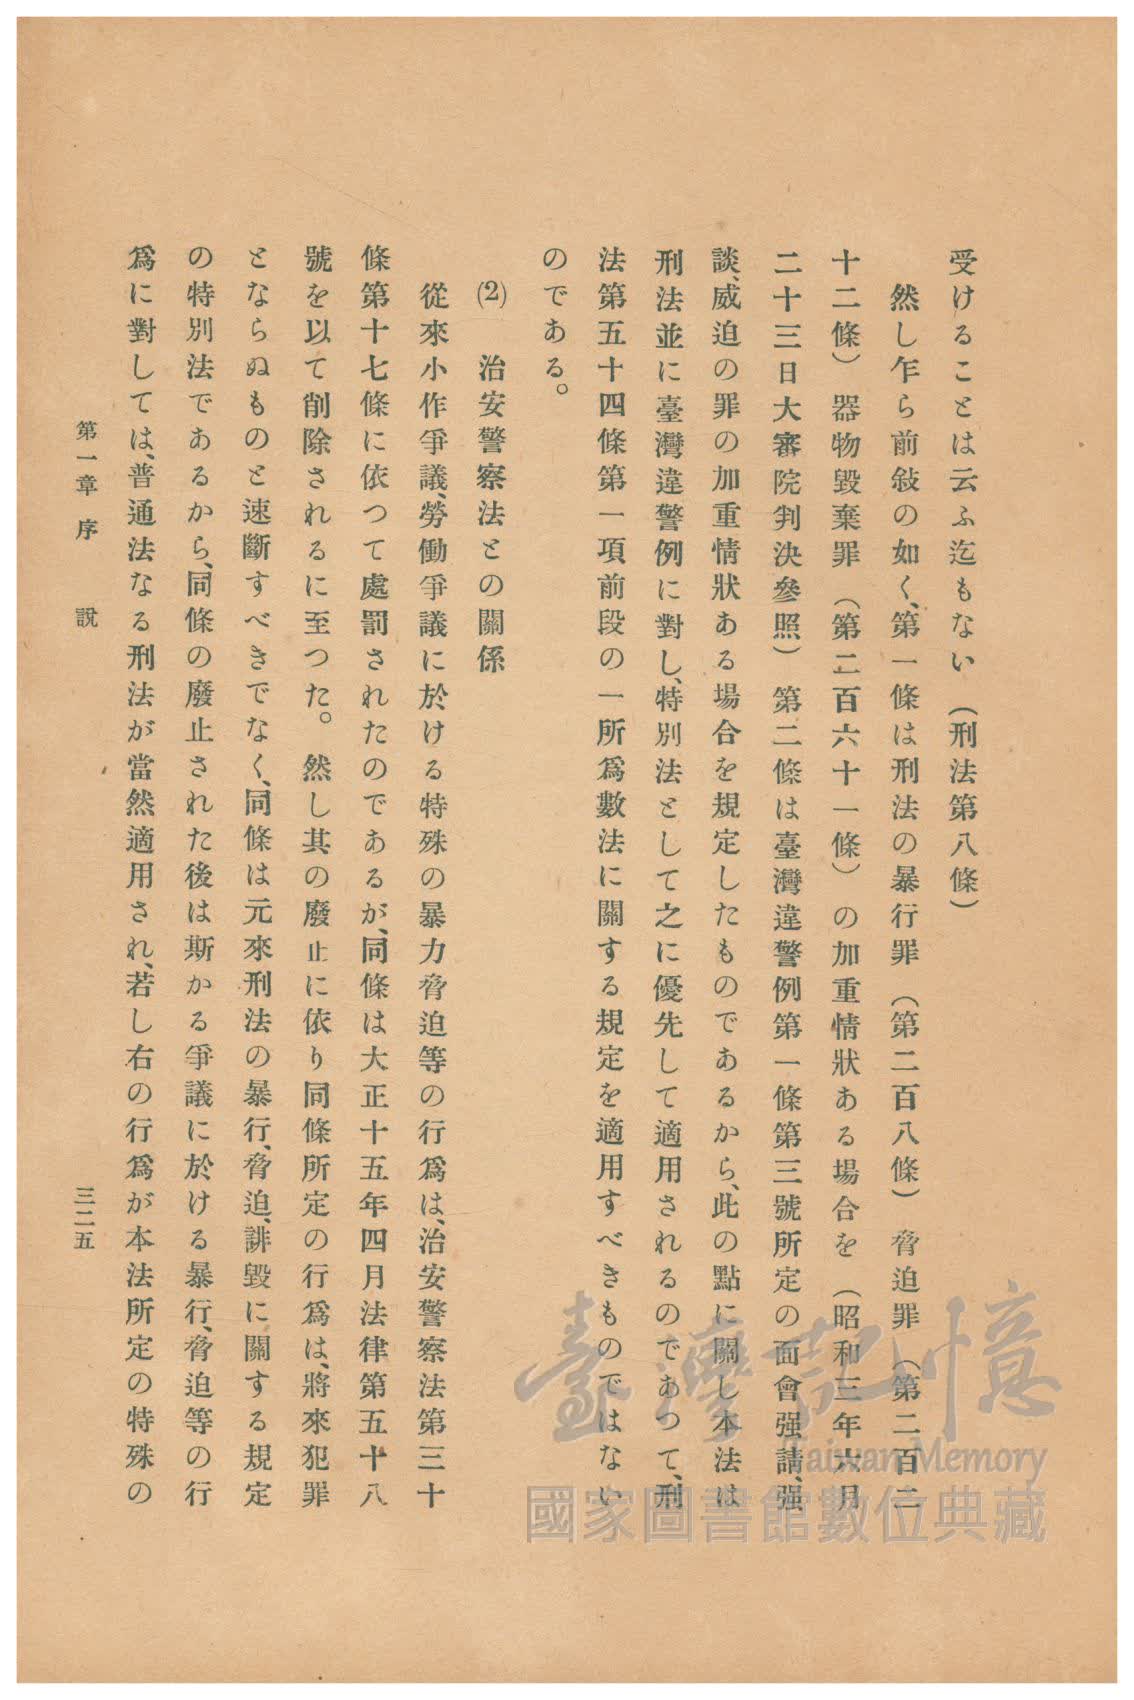 受けることは云ふ迄もない(刑法第八條)
然し乍ら前敍の如く、第一條は刑法の暴行罪(第二百八條)脅迫罪(第二百二
十二條)器物毀棄罪(第二百六十一條)の加重情狀ある場合を(昭和三年六月
二十三日大審院判決參照)第二條は臺灣違警例第一條第三號所定の面會强請、强
談、威迫の罪の加重情狀ある場合を規定したものであるから、此の點に關し本法は
刑法並に臺灣違警例に對し、特別法として之に優先して適用されるのであつて、刑
法第五十四條第一項前段の一所爲數法に關する規定を適用すべきものではない
のである。
(2) 治安警察法との關係
從來小作爭議、勞働爭議に於ける特殊の暴力脅迫等の行爲は、治安警察法第三十
條第十七條に依つて處罰されたのであるが、同條は大正十五年四月法律第五十八
號を以て削除されるに至つた。然し其の廢止に依り同條所定の行爲は、將來犯罪
とならぬものと速斷すべきでなく、同條は元來刑法の暴行、脅迫、誹毀に關する規定
の特別法であるから、同條の廢止された後は斯かる爭議に於ける暴行、脅迫等の行
爲に對しては、普通法なる刑法が當然適用され、若し右の行爲が本法所定の特殊の
第一章 序 說
三二五
臺灣記憶
Taiwan Memory
國家圖書館數位典藏